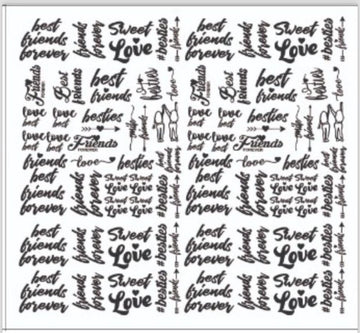 best friends forever
friends forever
Sweet Love
#besties
best friends forever
friends forever
Sweet Love
#besties
Friends
Best friends
best friends
besties
love
Friends
Best friends
best friends
besties
love
love best
love best
besties
love best
love best
besties
love best
love best
Friends
FOREVER
love best
love best
Friends
FOREVER
friends forever
love
besties
friends forever
love
besties
best friends forever
friends forever
Sweet Love Sweet Love
Sweet Love Sweet Love
#besties
best friends forever
friends forever
Sweet Love Sweet Love
Sweet Love Sweet Love
#besties
best friends forever
friends forever
Sweet Love
#besties
best friends forever
friends forever
Sweet Love
#besties
best friends forever
friends forever
Sweet Love
#besties
best friends forever
friends forever
Sweet Love
#besties